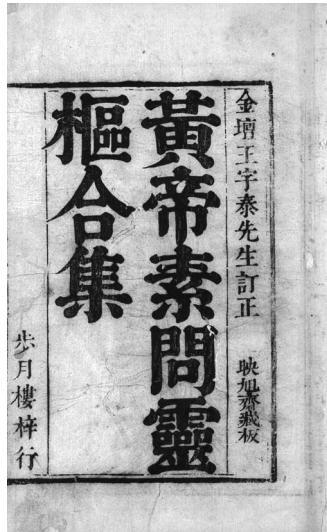 金壇王宇泰先生訂正
映旭齋藏板
黃帝素問靈
樞合集
步月樓梓行